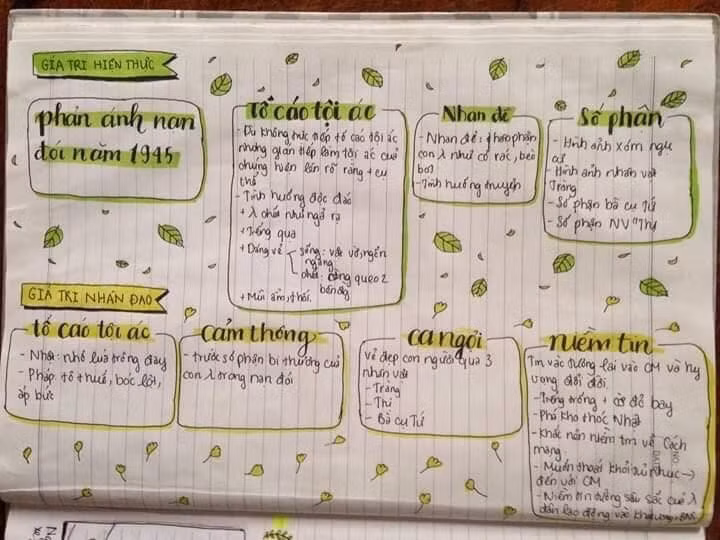 GIÁ TRỊ HIỆN THỰC
phản ánh nạn
đói năm 1945
Tố cáo tội ác
- Dù không trực tiếp tố cáo tội ác
nhưng gián tiếp làm tội ác của
chúng hiện lên rõ ràng + cụ
thể
- Tình huống độc đáo
+ λ chết như ngả rạ
+ Tiếng quạ
+ Dáng vẻ
sống: vật vờ, ngổn
ngang
chết: còng queo 2
bên đg
+ Mùi ẩm, thối.
Nhan đề
- Nhan đề: thân phận
con λ như cỏ rác, bèo
bọt
- Tình huống truyện
Số phận
- Hình ảnh xóm ngụ
cư
- Hình ảnh nhân vật
Tràng
- Số phận bà cụ Tứ
- Số phận NV "Thị
GIÁ TRỊ NHÂN ĐẠO
tố cáo tội ác
- Nhật: nhổ lúa trồng đay
- Pháp: tô thuế, bóc lột,
áp bức
cảm thông
- trước số phận bi thương của
con λ trong nạn đói
ca ngợi
vẻ đẹp con người qua 3
nhân vật
- Tràng
- Thị
- Bà cụ Tứ
niềm tin
Tin vào tương lai vào CM và hy
vọng đổi đời
- Trống trồng + cờ đỏ bay
- Phá kho thóc Nhật
- Khắc nản niềm tin về Cách
mạng
- Muốn thoát khỏi →
đến với CM
- Niềm tin tưởng sâu sắc của λ
dân lao động vào